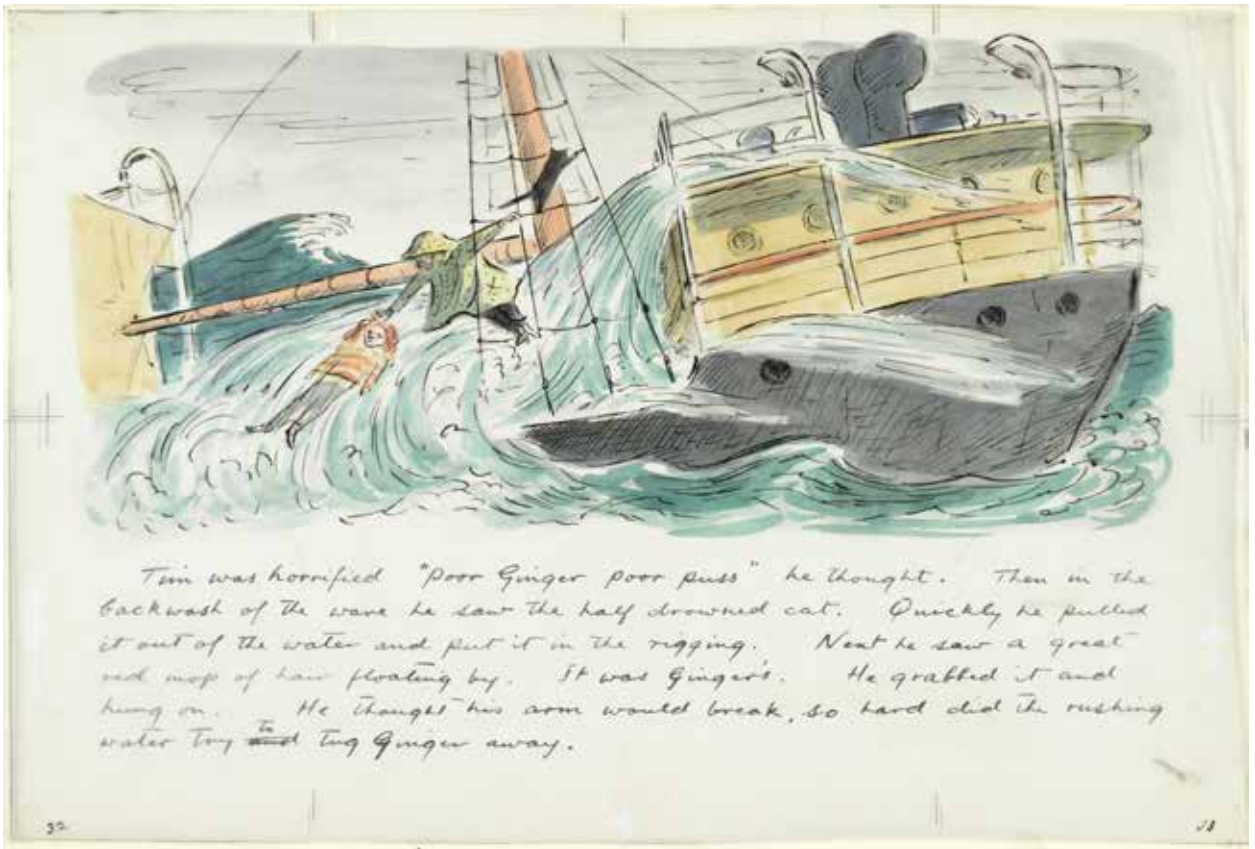 Tim was horrified "Poor Ginger poor puss" he thought. Then in the
backwash of the wave he saw the half drowned cat. Quickly he pulled
it out of the water and put it in the rigging. Next he saw a great
red mop of hair floating by. It was Ginger's. He grabbed it and
hung on. He thought his arm would break, so hard did the rushing
water try to tug Ginger away.
32